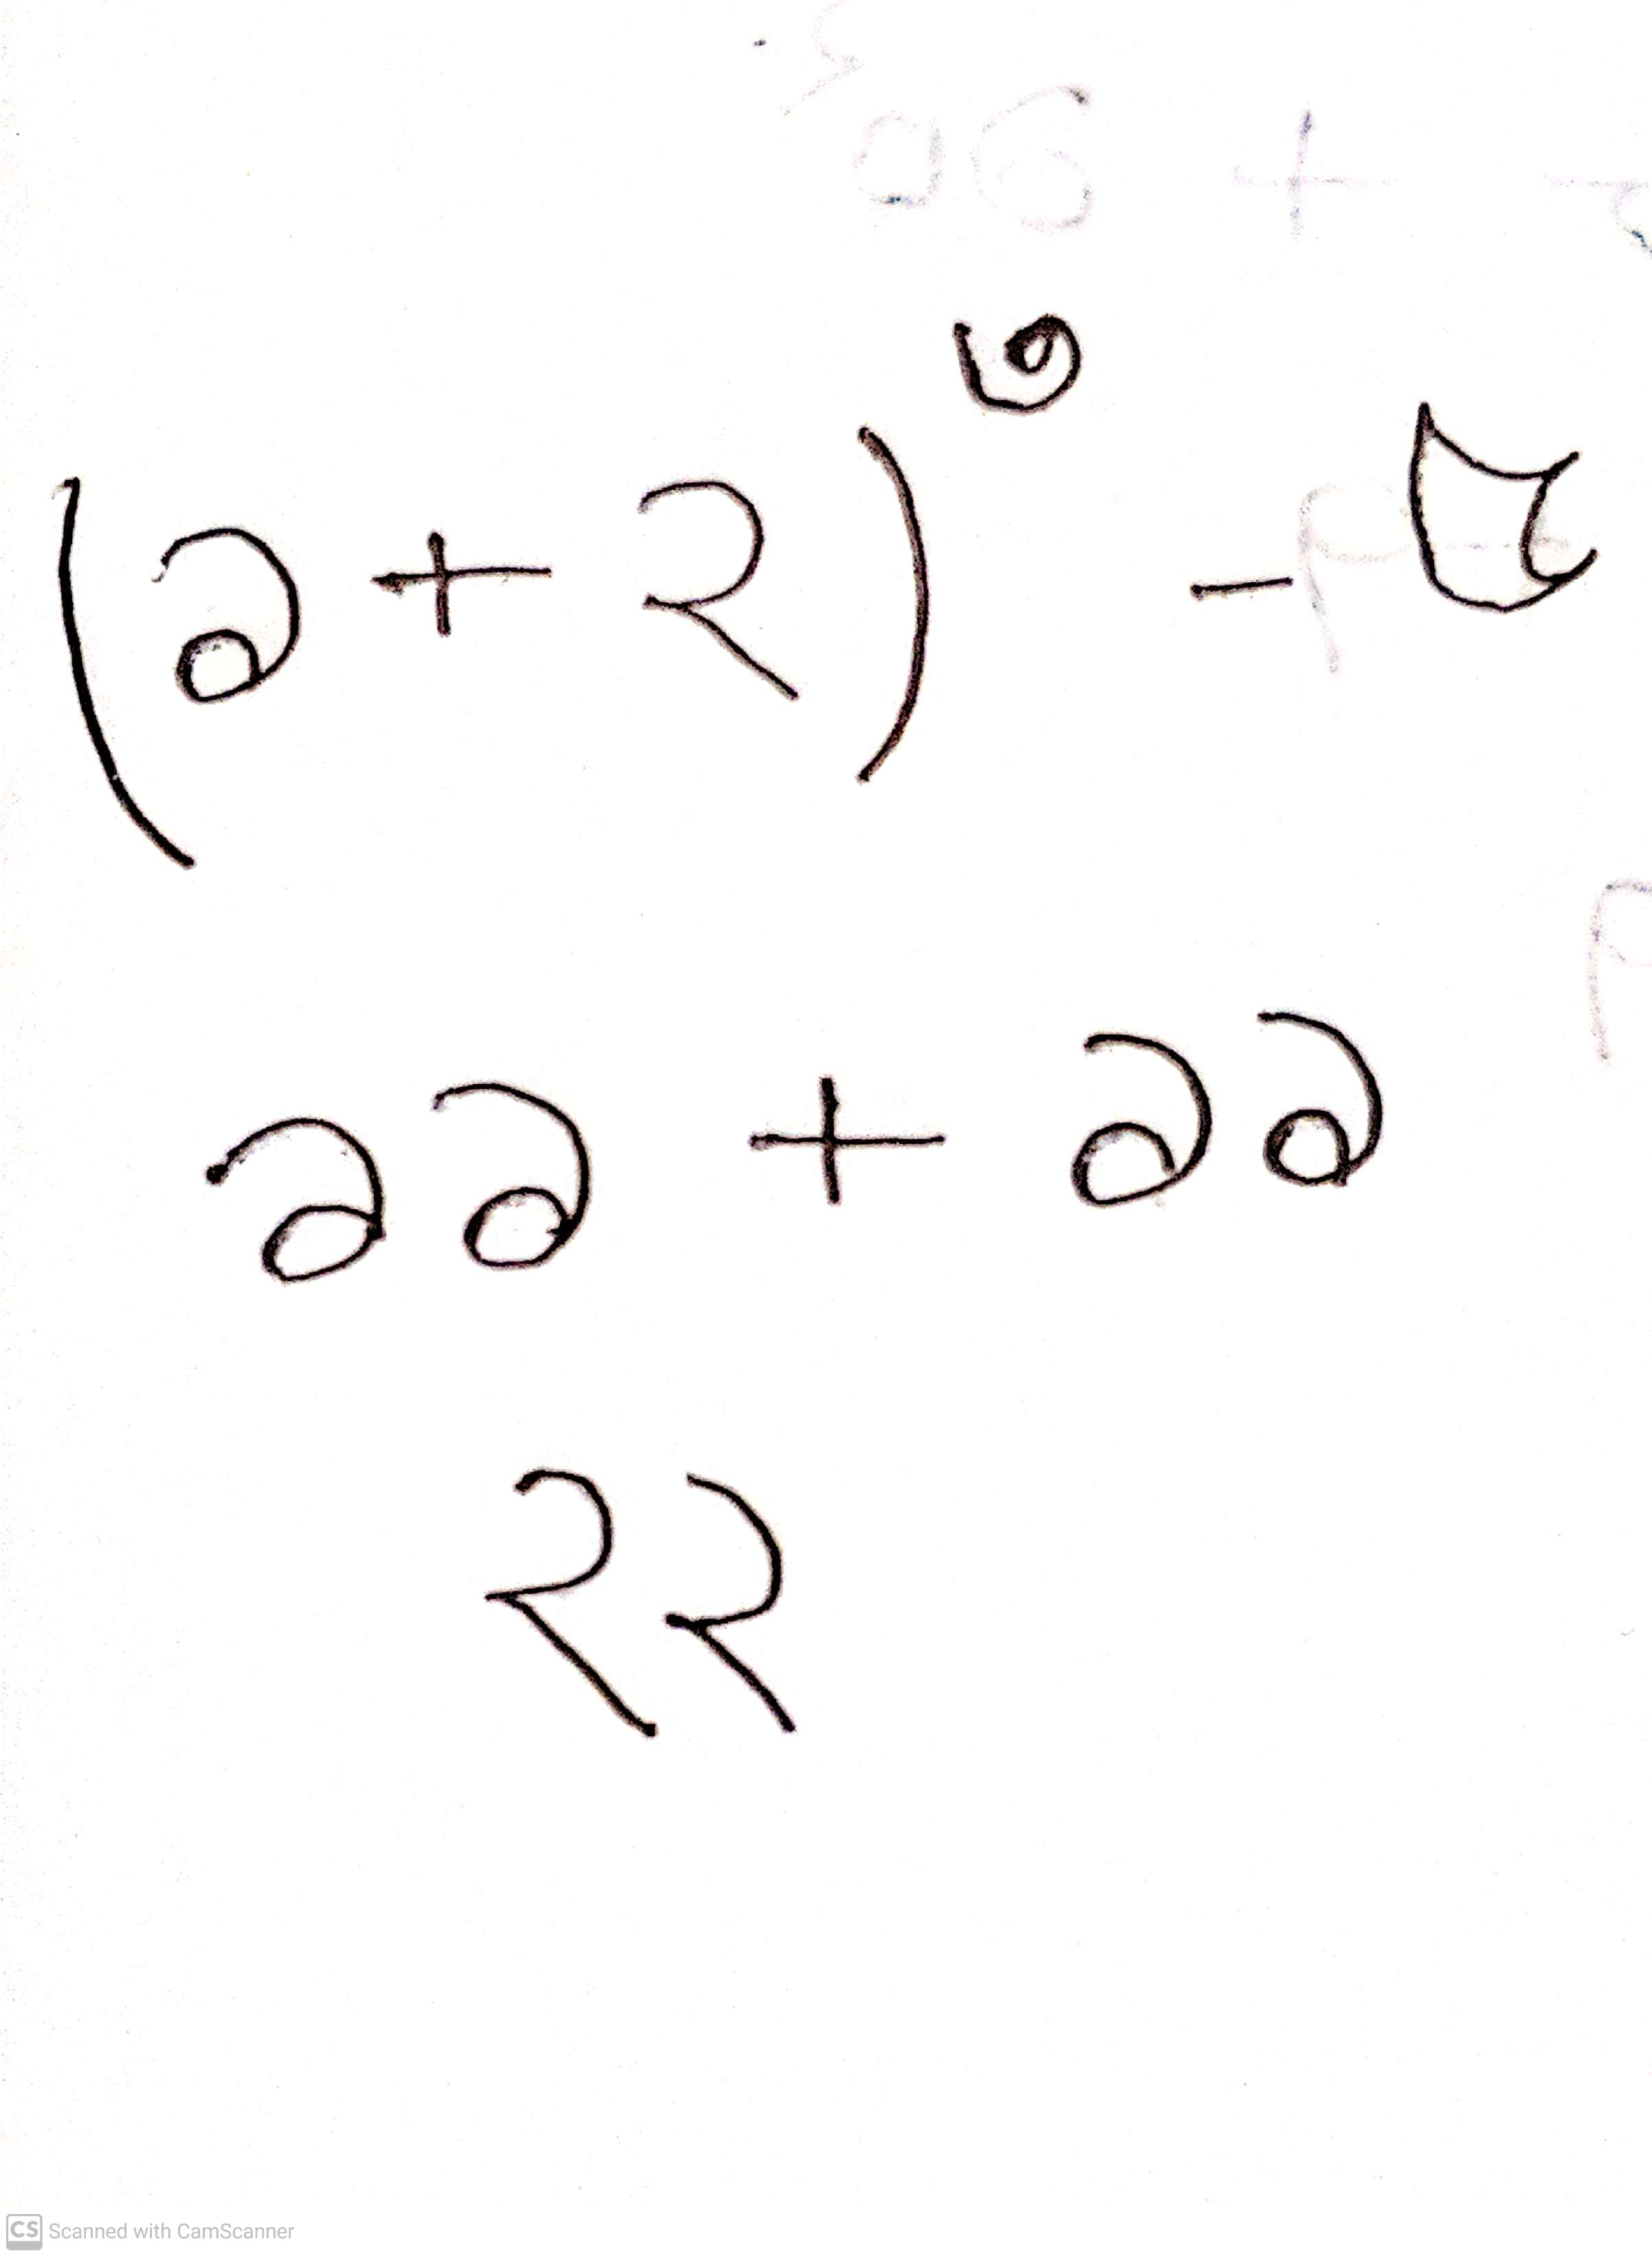 (১+২)^৩ - ৫
১১ + ১১
২২
CS Scanned with CamScanner